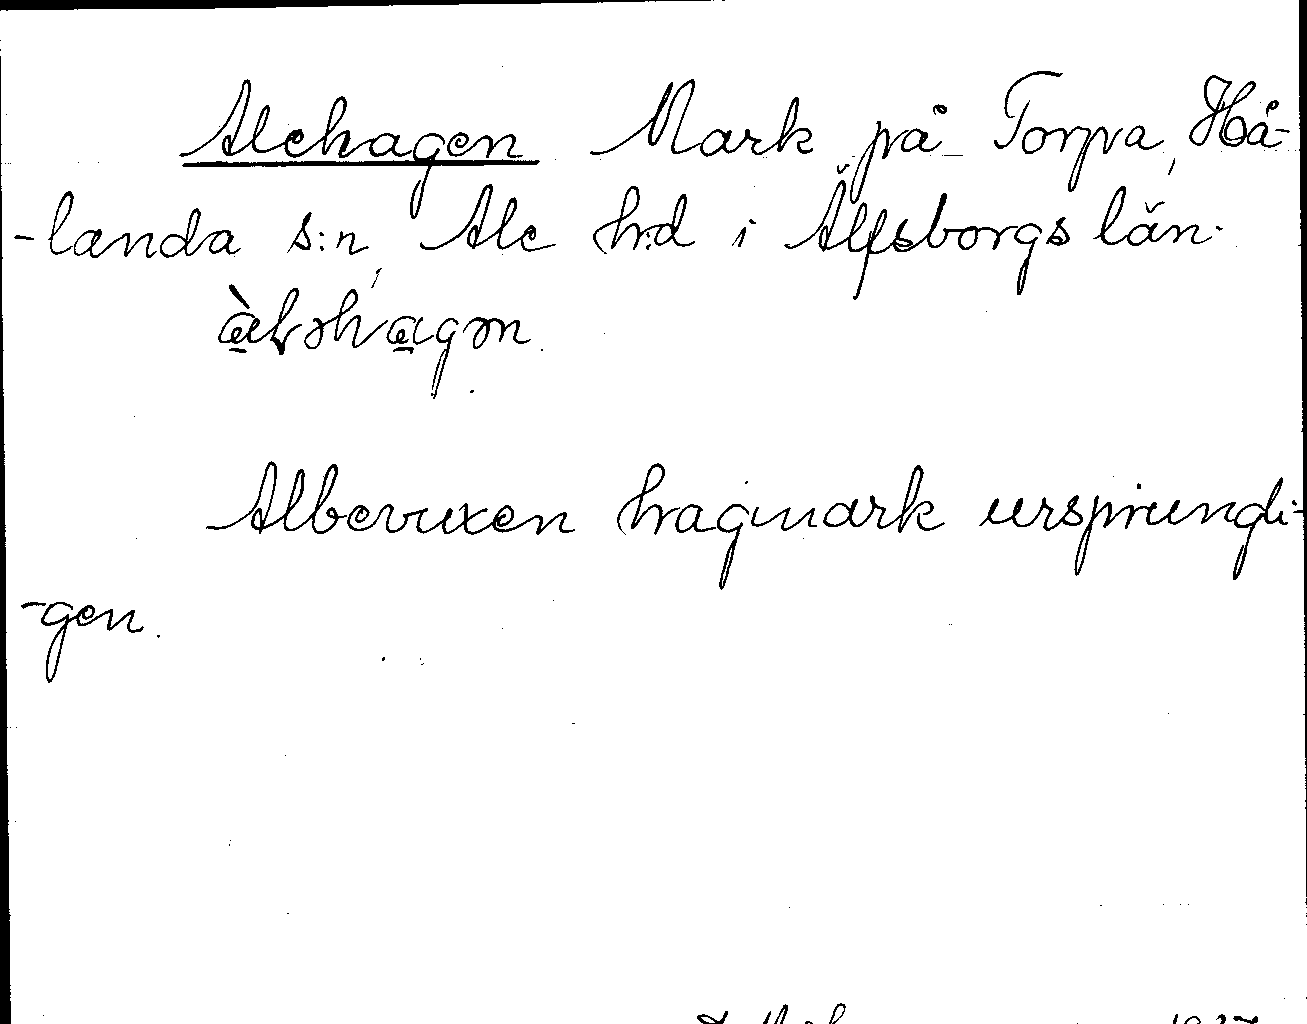 Alehagen Mark på Torpa, Hå-
-landa s:n, Ale h:d i Älfsborgs län.
Albevuxen hagmark ursprungli-
-gen.